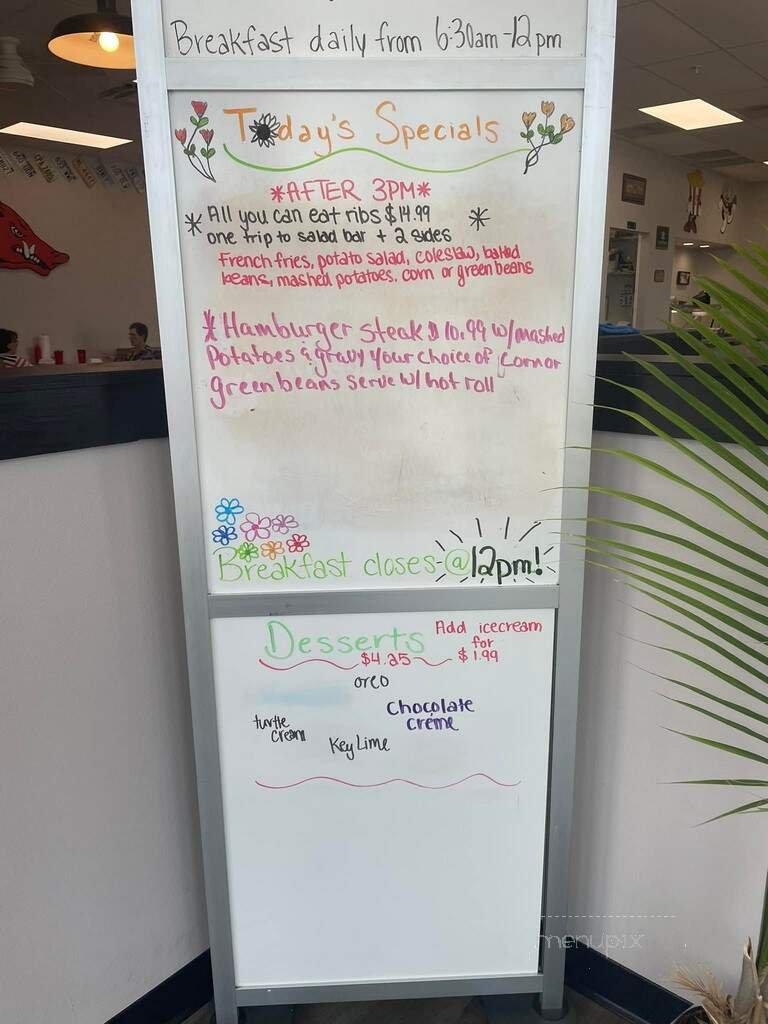 Breakfast daily from 6:30am-12pm
Today's Specials
*AFTER 3PM*
* All you can eat ribs $14.99 *
one trip to salad bar + 2 sides
French fries, potato salad, coleslaw, baked
beans, mashed potatoes, corn or green beans
* Hamburger steak $10.99 w/mashed
potatoes & gravy your choice of corn or
green beans serve w/ hot roll
Breakfast closes-@12pm!
Desserts
Add icecream
for
$4.25
$1.99
oreo
Chocolate
créme
turtle
cream
Key Lime
menupix